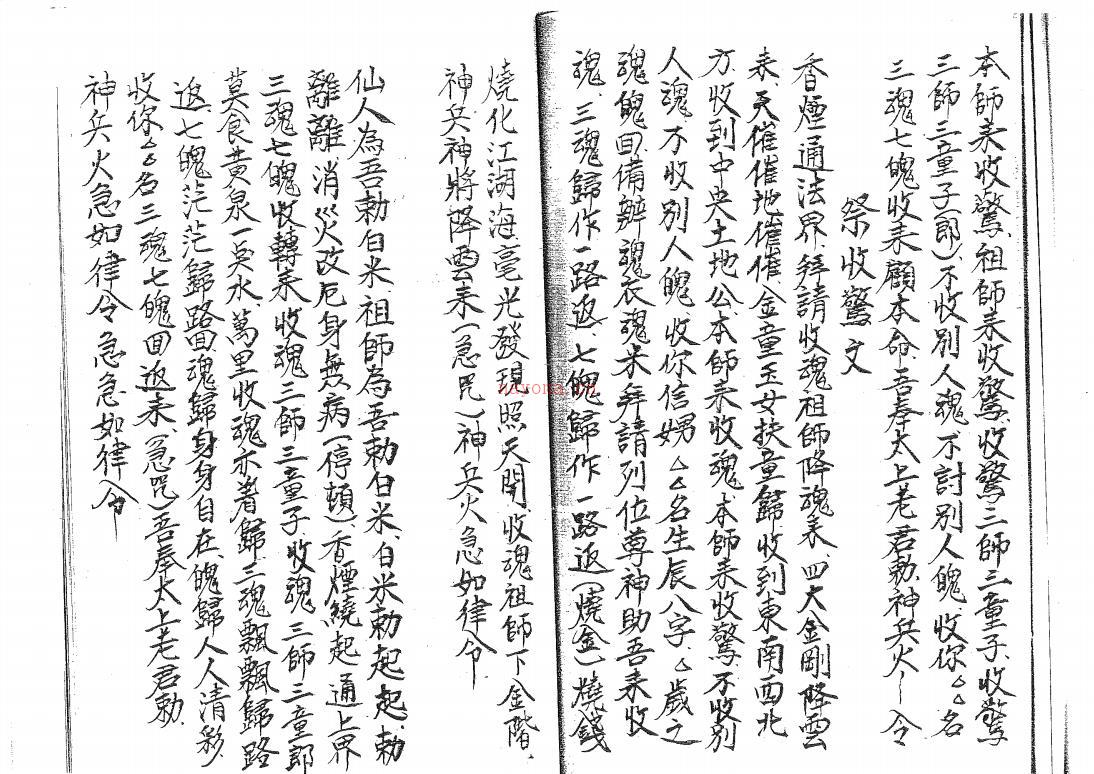 本師来收驚、祖師来收驚、收驚三師三童子、收驚
三師三童子(郎)、不收別人魂、不討別人魄、收你△△名
三魂七魄收来顧本命、吾奉太上老君勅、神兵火〡令
祭收驚文
香煙通法界、拜請收魂祖師降魂来、四大金剛降雲
来、天催催地催催、金童玉女扶童歸、收到東南西北
方、收到中央土地公、本師来收魂、本師来收驚、不收別
人魂、不收別人魄、收你信娚△△名生辰八字、△歲之
魂魄回、備辦魂衣魂米、拜請列位尊神助吾来收
魂、三魂歸作一路返、七魄歸作一路返(燒金)燒錢
燒化江湖海毫光發現照天開、收魂祖師下金階、
神兵神將降雲来(急咒)神兵火急如律令
仙人為吾勅白米、祖師為吾勅白米、白米勅起起勅
離離消災改厄身無病(停頓)、香煙繞起通上界
三魂七魄收轉来、收魂三師三童子、收魂三師三童郎
莫食黄泉一点水、萬里收魂亦着歸、三魂飄飄歸路
返、七魄茫茫歸路回、魂歸身身自在、魄歸人人清彩、
收你△△名三魂七魄回返来、(急咒)吾奉太上老君勅
神兵火急如律令急急如律令
nayona.cn